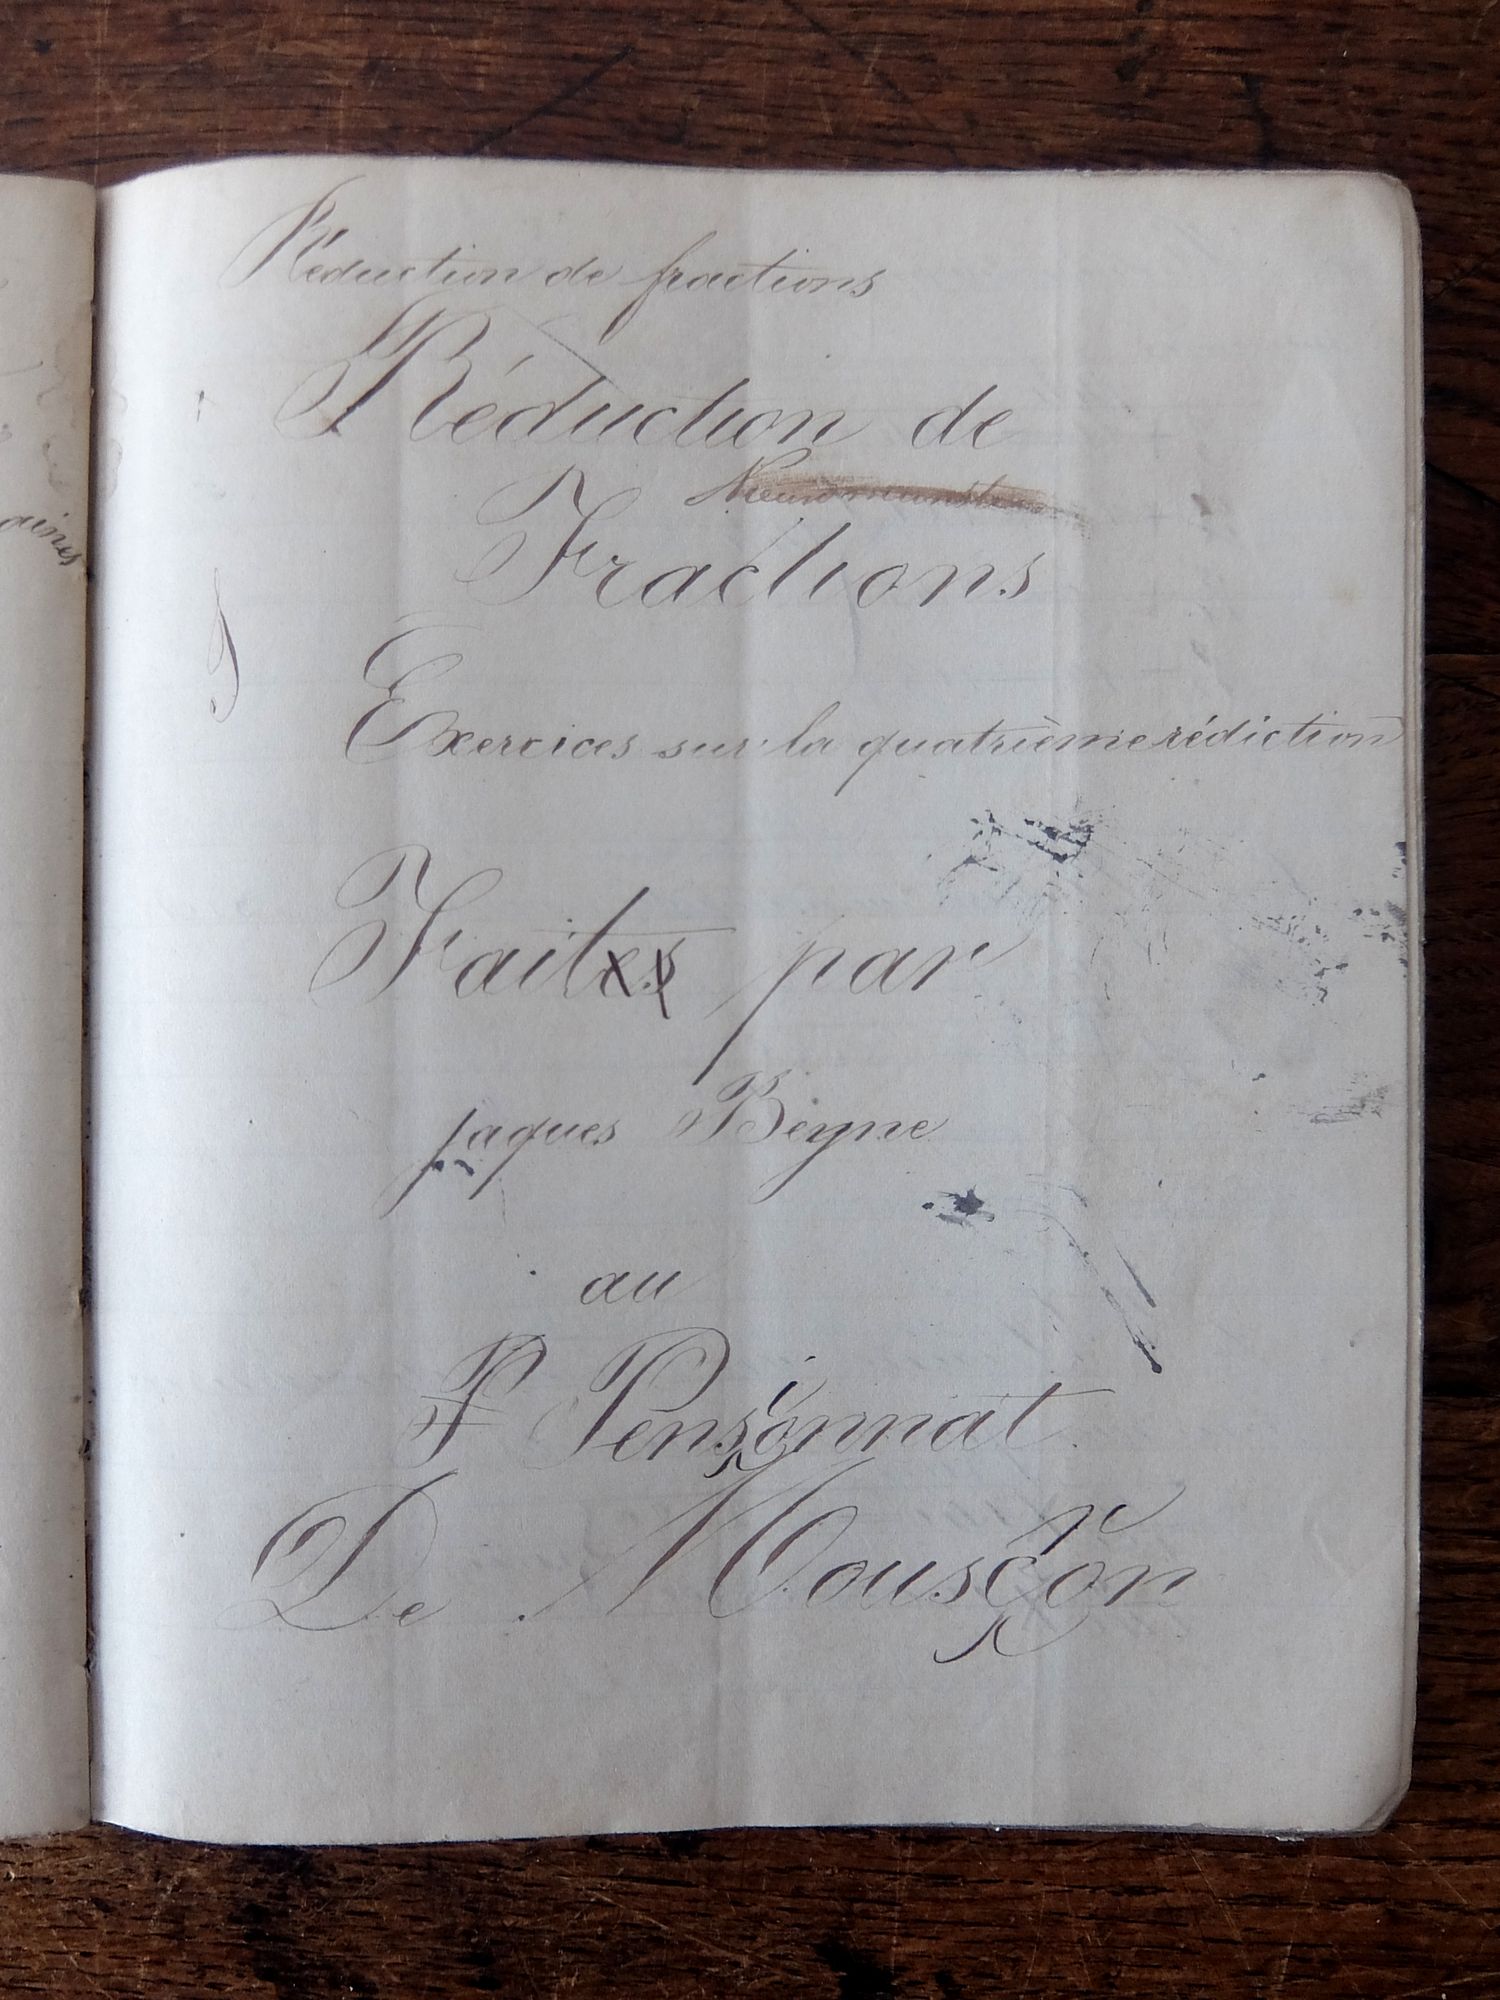 Réduction de fractions
Réduction de
Fractions
Exercices sur la quatrième rédiction
Faites par
jaques Beyne
au
P Pensionnat
De Mouscron
aines